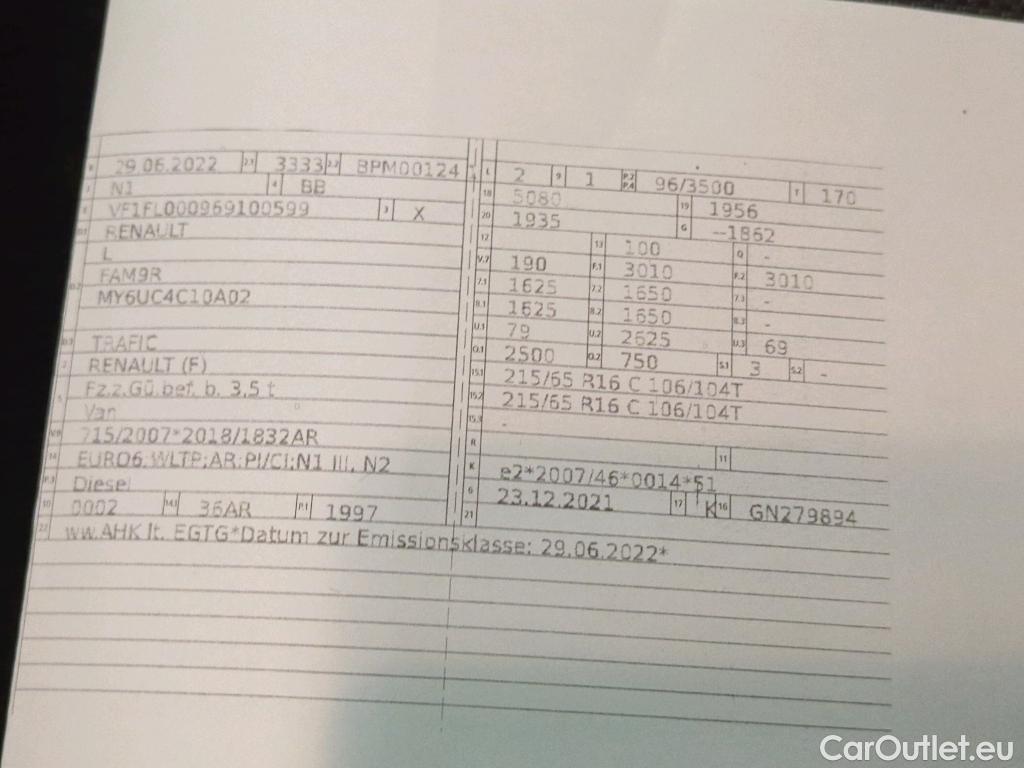 B 29.06.2022 2.1 3333 2.2 BPM00124
J N1 4 BB
E VF1FL000969100599 3 X
D.1 RENAULT
L
D.2 FAM9R
MY6UC4C10A02
D.3 TRAFIC
2 RENAULT (F)
5 Fz.z.Gü.bef. b. 3,5 t
Van
V.9 715/2007*2018/1832AR
14 EURO6;WLTP;AR;PI/CI;N1 III, N2
P.3 Diesel
10 0002 14.1 36AR P.1 1997
L 2 9 1 P.2 P.4 96/3500 T 170
18 5080 19 1956
20 1935 G --1862
12 - 13 100 Q -
V.7 190 F.1 3010 F.2 3010
7.1 1625 7.2 1650 7.3 -
8.1 1625 8.2 1650 8.3 -
U.1 79 U.2 2625 U.3 69
O.1 2500 O.2 750 S.1 3 S.2 -
15.1 215/65 R16 C 106/104T
15.2 215/65 R16 C 106/104T
15.3 -
R 11
K e2*2007/46*0014*51
6 23.12.2021 17 K 16 GN279894
21
22 ww.AHK lt. EGTG*Datum zur Emissionsklasse: 29.06.2022*
CarOutlet.eu